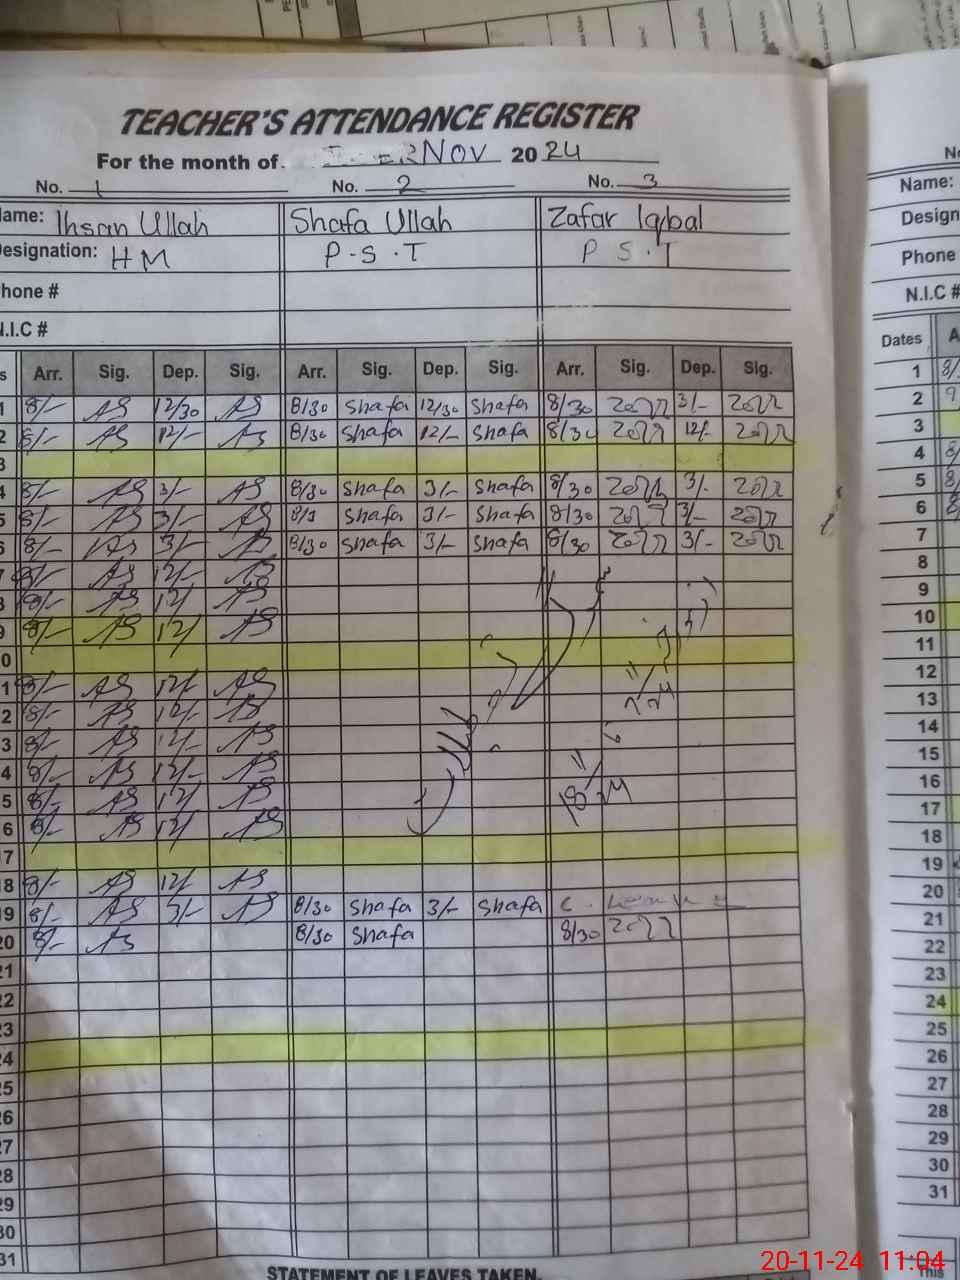 TEACHER'S ATTENDANCE REGISTER
For the month of NOV 2024
No. 1 No. 2 No. 3
Name: Ihsan Ullah Shafa Ullah Zafar Iqbal
Designation: HM P.S.T P S.T
Phone #
N.I.C #
Arr. Sig. Dep. Sig. Arr. Sig. Dep. Sig. Arr. Sig. Dep. Sig.
1 8/- AS 12/30 AS 8/30 Shafa 12/30 Shafa 8/30 3/-
2 8/- AS 12/- AS 8/30 Shafa 12/- Shafa 8/30 12/-
3
4 8/- AS 3/- AS 8/30 Shafa 3/- Shafa 8/30 3/-
5 8/- AS 3/- AS 8/3 Shafa 3/- Shafa 8/30 3/-
6 8/- AS 3/- AS 8/30 Shafa 3/- Shafa 8/30 3/-
7 8/- AS 12/- AS
8 8/- AS 12/ AS
9 8/- AS 12/ AS
10
11 8/- AS 12/- AS
12 8/- AS 12/- AS
13 8/- AS 12/- AS
14 8/- AS 12/- AS
15 8/- AS 12/ AS
16 8/- AS 12/ AS
17
18 8/- AS 12/- AS
19 8/- AS 3/- AS 8/30 Shafa 3/- Shafa
20 8/- AS 8/30 Shafa 8/30
21
22
23
24
25
26
27
28
29
30
31
STATEMENT OF LEAVES TAKEN.
No
Name:
Design
Phone
N.I.C #
Dates A
1 8/
2 9
3
4 8/
5 8/
6 8/
7
8
9
10
11
12
13
14
15
16
17
18
19
20
21
22
23
24
25
26
27
28
29
30
31
This
20-11-24 11:04